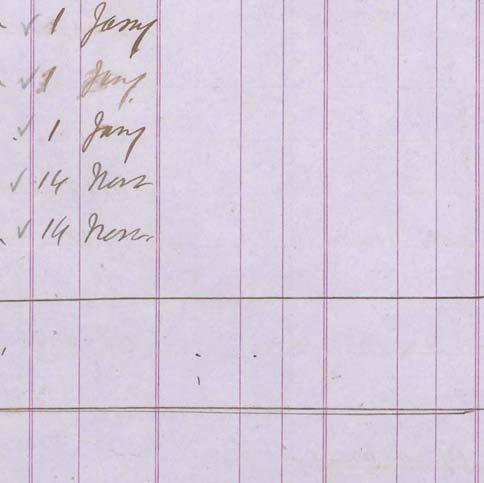 ✓ 1 Jany
✓ 1 Jany
✓ 1 Jany
✓ 14 Novr
✓ 14 Novr